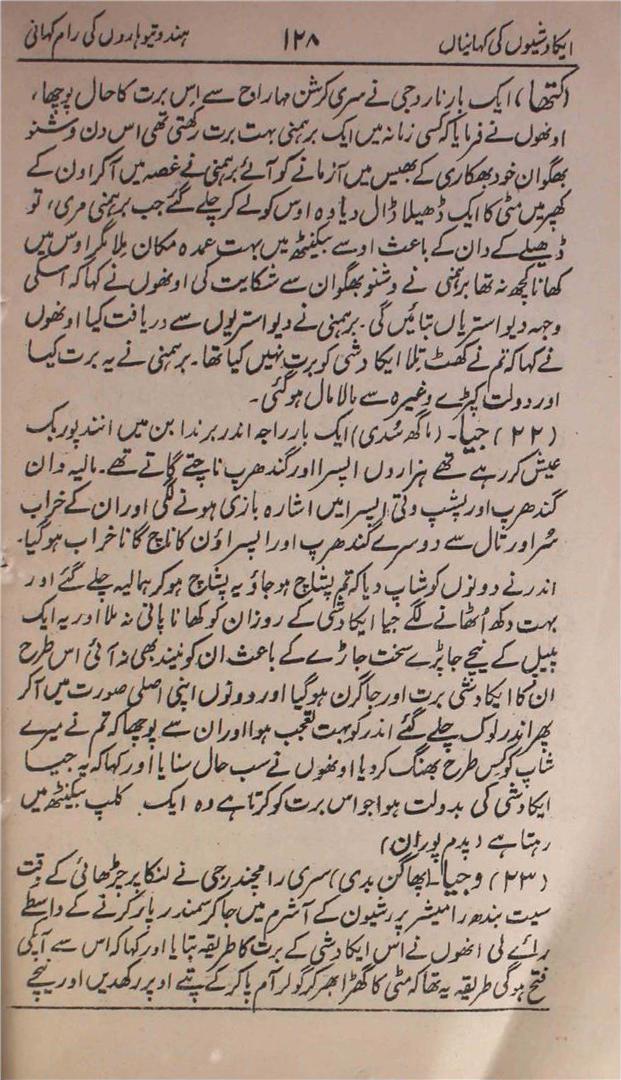 ایکادشیوں کی کہانیاں ۱۲۸ ہندو تیوہاروں کی رام کہانی
(کتھا) ایک بار نارد جی نے سری کرشن مہاراج سے اس برت کا حال پوچھا،
اونھوں نے فرمایا کہ کسی زمانہ میں ایک برہمنی بہت برت رکھتی تھی اس دن وشنو
بھگوان خود بھکاری کے بھیس میں آزمانے کو آئے برہمنی نے غصہ میں آکر اون کے
کھپر میں مٹی کا ایک ڈھیلا ڈال دیا وہ اوس کو لے کر چلے گئے جب برہمنی مری، تو
ڈھیلے کے دان کے باعث اوسے بیکنٹھ میں بہت عمدہ مکان ملا مگر اوس میں
کھانا کچھ نہ تھا برہمنی نے وشنو بھگوان سے شکایت کی اونھوں نے کہا کہ اسکی
وجہہ دیو استریاں بتائیں گی۔ برہمنی نے دیو استریوں سے دریافت کیا اونھوں
نے کہا کہ تم نے کھٹ تلا ایکادشی کو برت نہیں کیا تھا۔ برہمنی نے یہ برت کیا
اور دولت کپڑے وغیرہ سے مالا مال ہو گئی۔
(۲۲) جیا۔ (ماگھ سُدی) ایک بار راجہ اندر برندا بن میں انند پوربک
عیش کر رہے تھے ہزاروں اپسرا اور گندھرپ ناچتے گاتے تھے۔ مالیہ وان
گندھرپ اور پشپ وتی اپسرا میں اشارہ بازی ہونے لگی اور ان کے خراب
سُر اور تال سے دوسرے گندھرپ اور اپسراؤں کا ناچ گانا خراب ہو گیا۔
اندر نے دونوں کو شاپ دیا کہ تم پشاچ ہو جاؤ یہ پشاچ ہو کر ہمالیہ چلے گئے اور
بہت دکھ اُٹھانے لگے جیا ایکادشی کے روز ان کو کھانا پانی نہ ملا اور یہ ایک
پیپل کے نیچے جا پڑے سخت جاڑے کے باعث ان کو نیند بھی نہ آئی اس طرح
ان کا ایکادشی برت اور جاگرن ہو گیا اور دونوں اپنی اصلی صورت میں آکر
پھر اندر لوک چلے گئے اندر کو بہت تعجب ہوا اور ان سے پوچھا کہ تم نے میرے
شاپ کو کس طرح بھنگ کر دیا اونھوں نے سب حال سنایا اور کہا کہ یہ جیا
ایکادشی کی بدولت ہوا جو اس برت کو کرتا ہے وہ ایک کلپ بیکنٹھ میں
رہتا ہے (پدم پوران)
(۲۳) وجیا۔ (پھاگن بدی) سری رامچندر جی نے لنکا پر چڑھائی کے وقت
سیت بندھ رامیشر پر رشیون کے آشرم میں جا کر سمندر پار کرنے کے واسطے
رائے لی انھوں نے اس ایکادشی کے برت کا طریقہ بتایا اور کہا کہ اس سے آپکی
فتح ہوگی طریقہ یہ تھا کہ مٹی کا گھڑا بھر کر گولر آم پاکر کے پتے اوپر رکھدیں اور نیچے